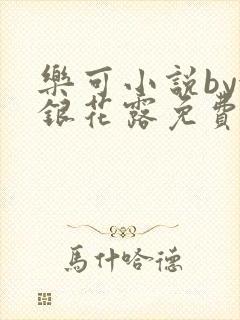 樂可小説by
銀花露免費
馬什哈德